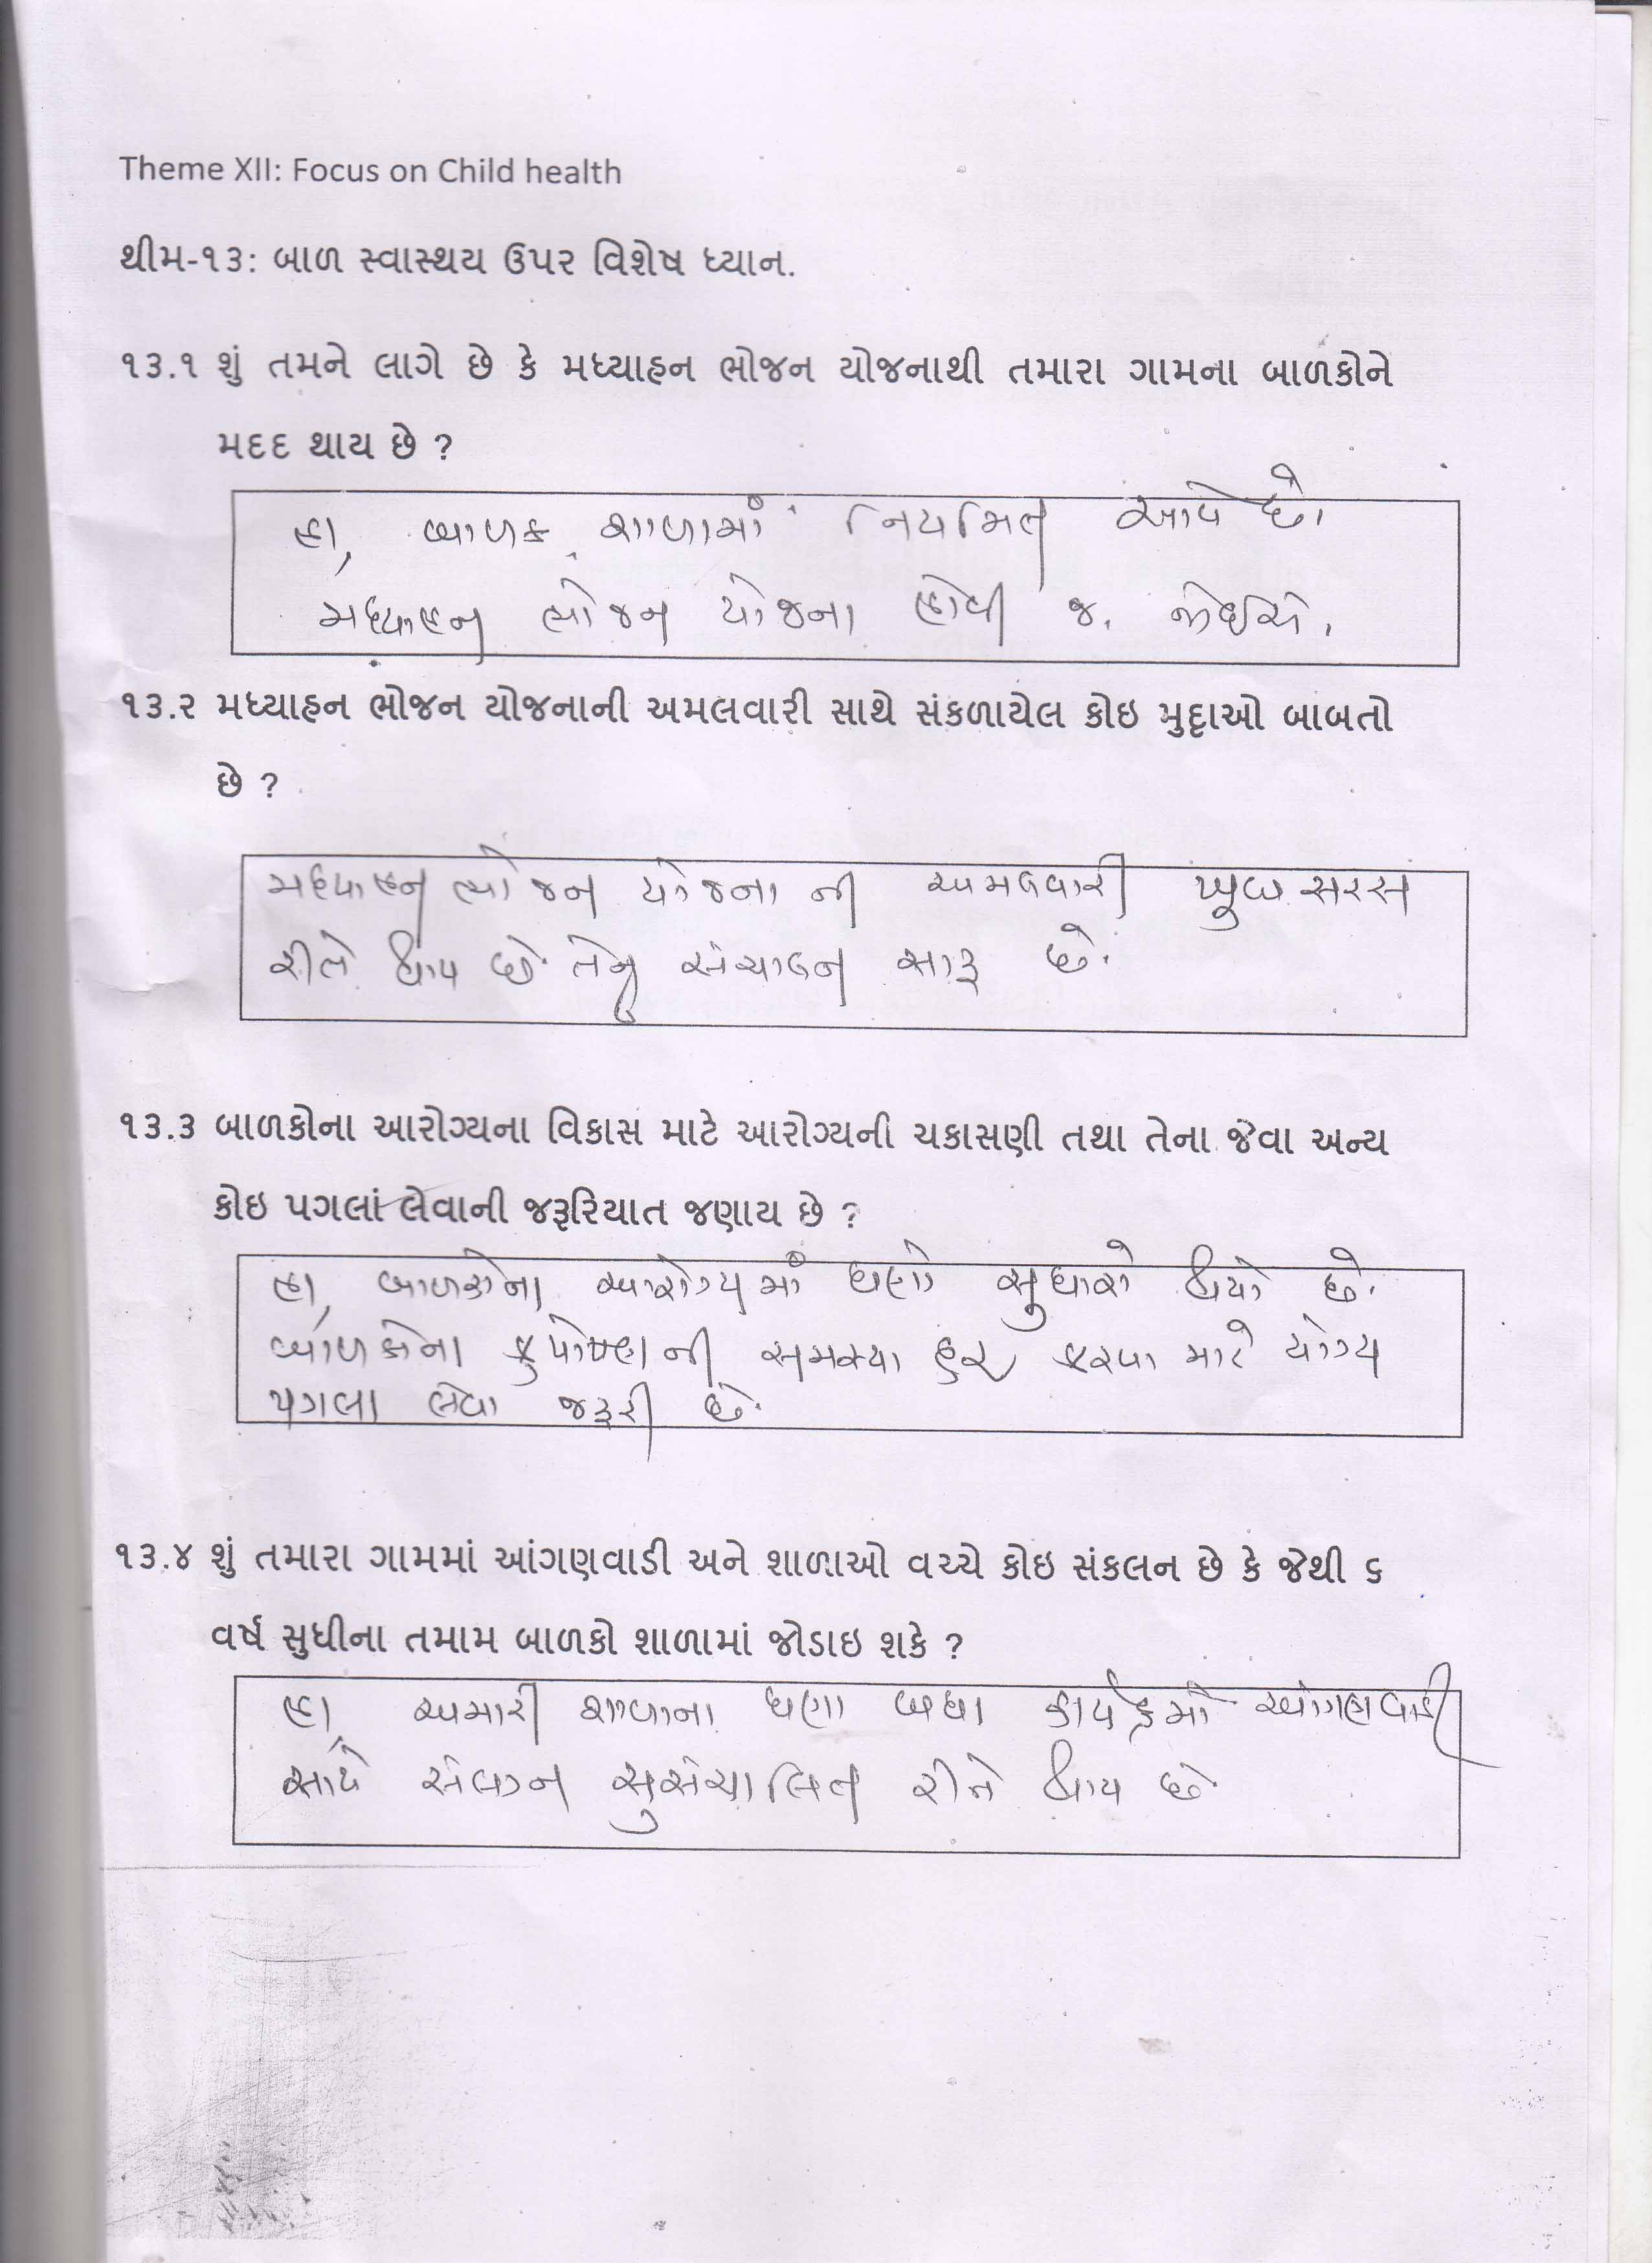 Theme XII: Focus on Child health
થીમ-૧૩: બાળ સ્વાસ્થય ઉપર વિશેષ ધ્યાન.
૧૩.૧ શું તમને લાગે છે કે મધ્યાહન ભોજન યોજનાથી તમારા ગામના બાળકોને
મદદ થાય છે ?
હા, બાળક શાળામાં નિયમિત આવે છે.
મધ્યાહન ભોજન યોજના હોવી જ. જોઈએ.
૧૩.૨ મધ્યાહન ભોજન યોજનાની અમલવારી સાથે સંકળાયેલ કોઇ મુદ્દાઓ બાબતો
છે ?
મધ્યાહન ભોજન યોજના ની અમલવારી ખુબ સરસ
રીતે થાય છે. તેનુ સંચાલન સારૂ છે.
૧૩.૩ બાળકોના આરોગ્યના વિકાસ માટે આરોગ્યની ચકાસણી તથા તેના જેવા અન્ય
કોઇ પગલાં લેવાની જરૂરિયાત જણાય છે ?
હા, બાળકોના આરોગ્યમાં ઘણો સુધારો થયો છે.
બાળકોના કુપોષણની સમસ્યા દુર કરવા માટે યોગ્ય
પગલા લેવા જરૂરી છે.
૧૩.૪ શું તમારા ગામમાં આંગણવાડી અને શાળાઓ વચ્ચે કોઇ સંકલન છે કે જેથી ૬
વર્ષ સુધીના તમામ બાળકો શાળામાં જોડાઇ શકે ?
હા, અમારી શાળાના ઘણા બધા કાર્યક્રમો આંગણવાડી
સાથે સંલગ્ન સુસંચાલિત રીતે થાય છે.